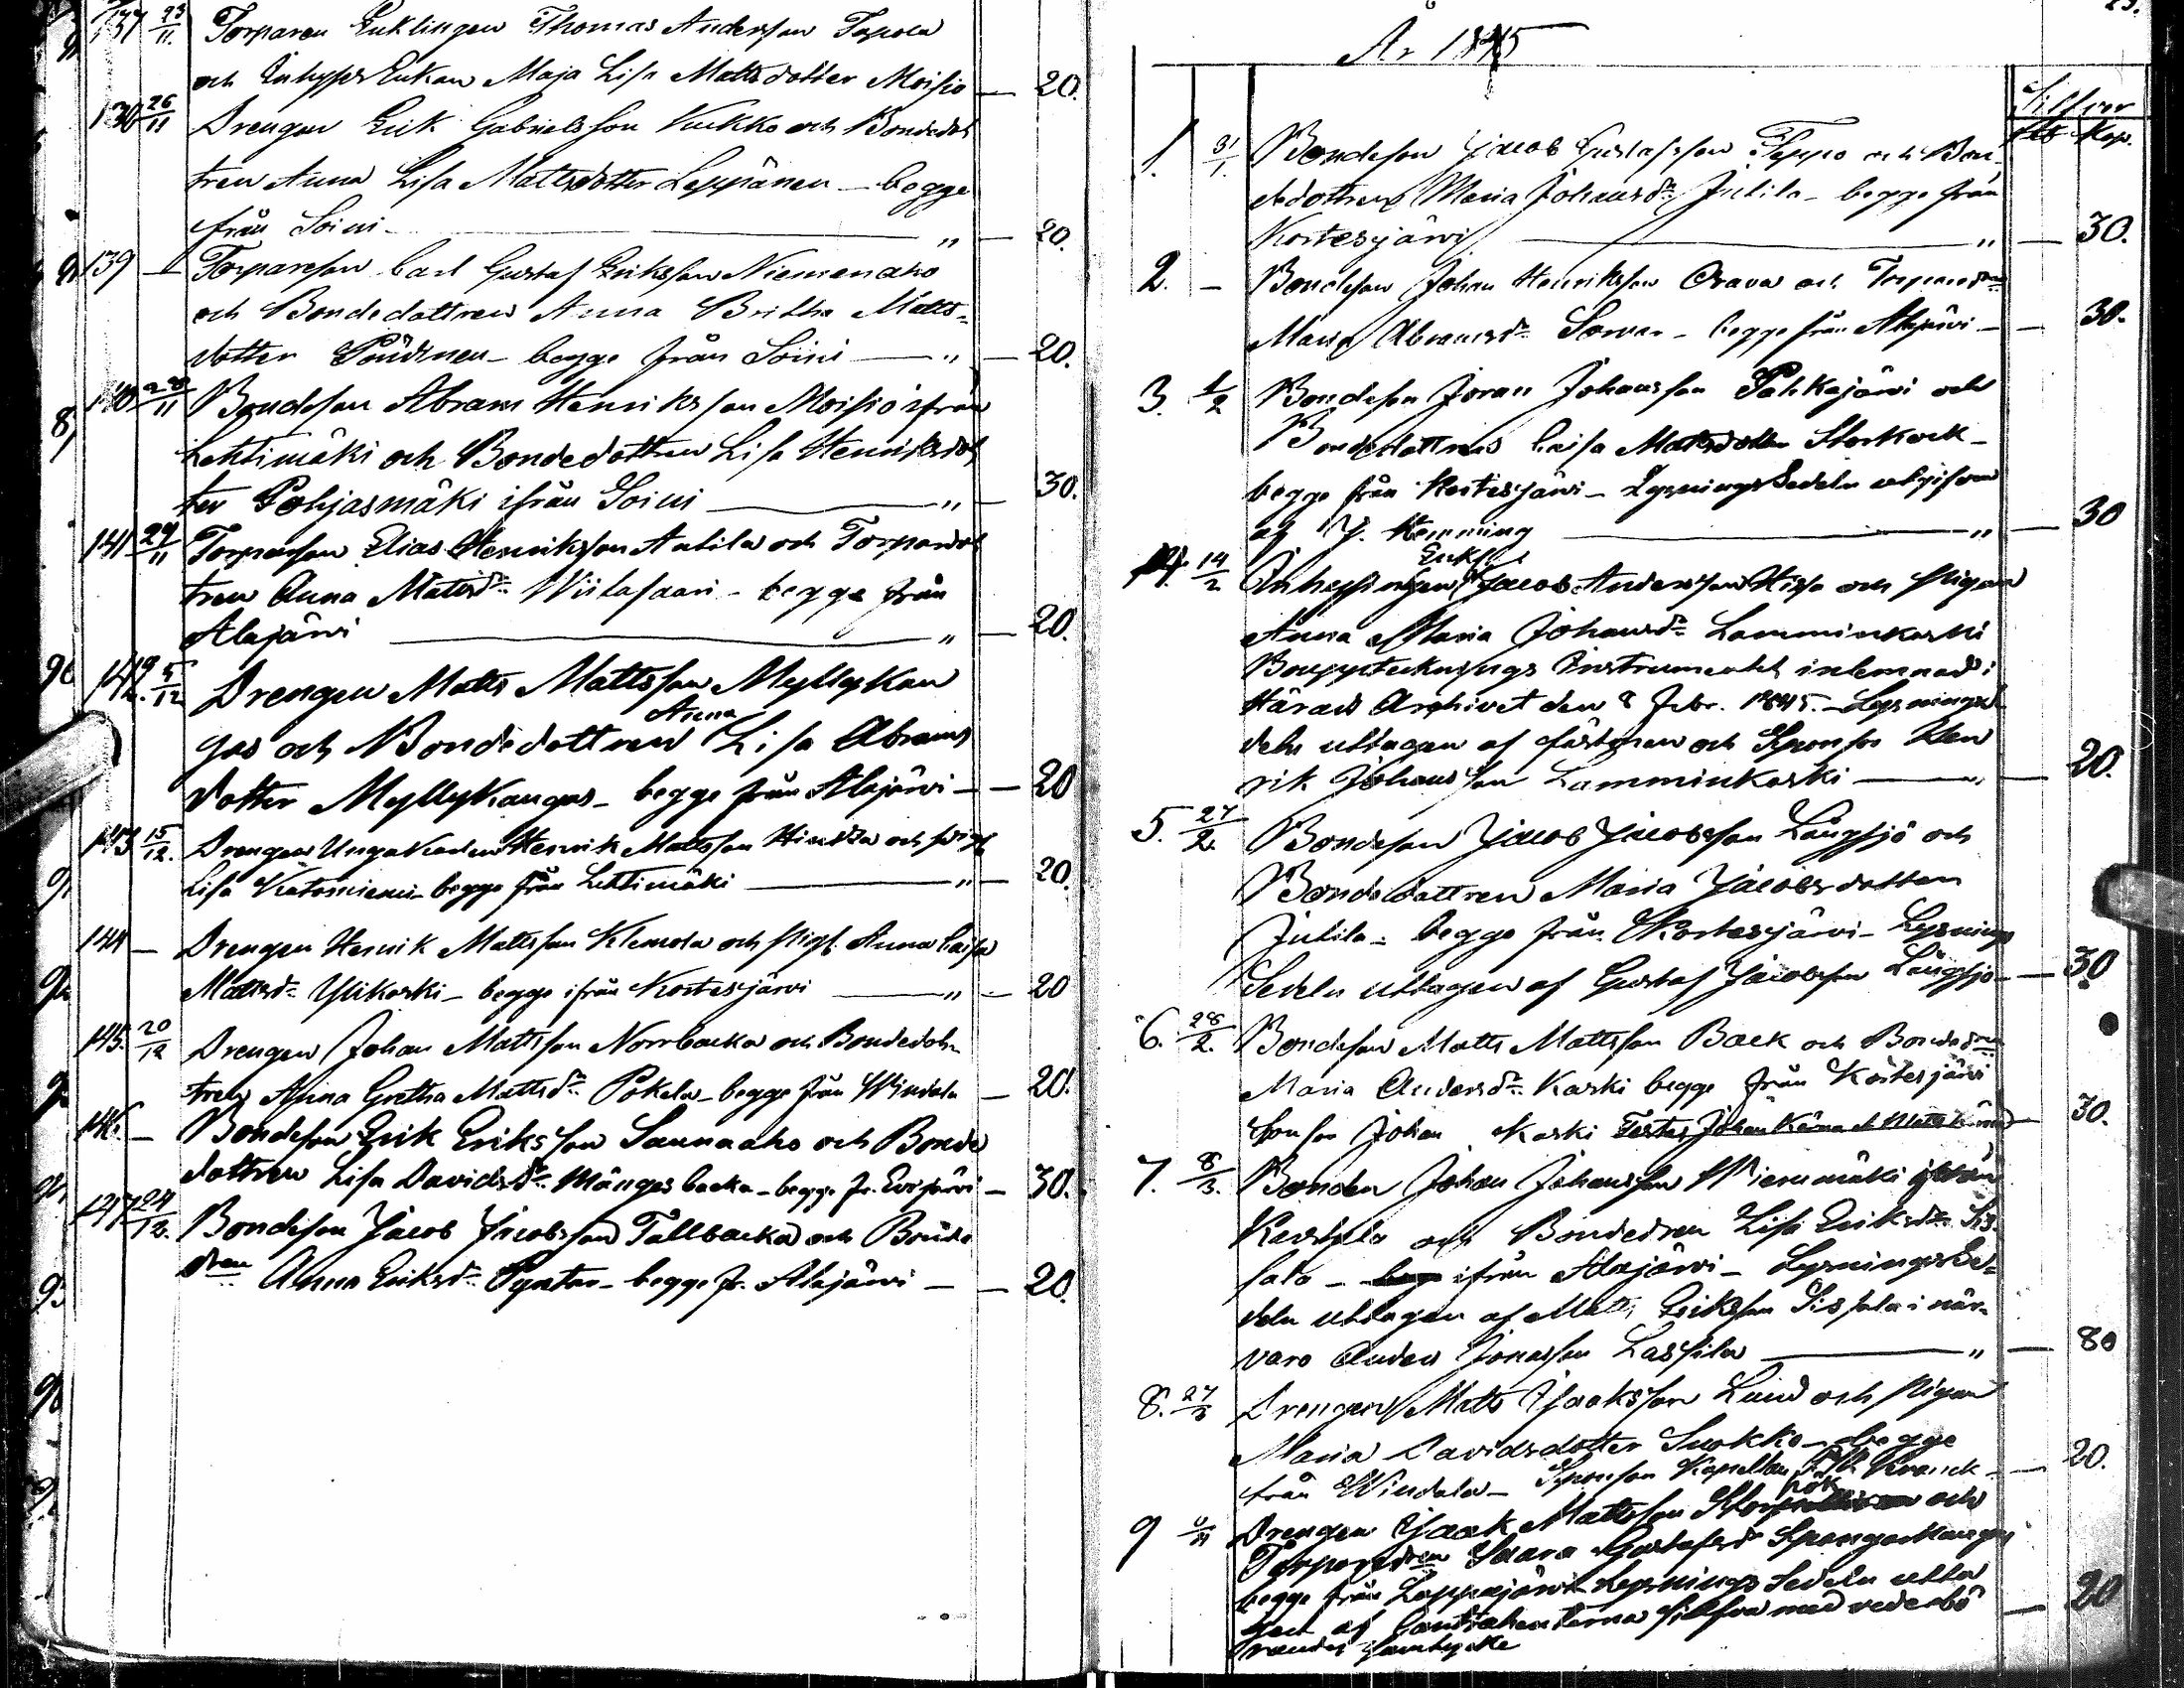 137 23/11. Torparen Enklingen Thomas Andersson Topola
och Inhyses Enkan Maja Lisa Mattsdotter Moisio — 20.
138 26/11 Drengen Erik Gabrielsson Kukko och Bondedot
tren Anna Lisa Mattsdotter Leppänen — begge
från Soini — " — 20.
139 — Torpareson Carl Gustaf Eriksson Niemenaho
och Bondedottren Anna Britha Matts-
dotter — begge från Soini — " — 20.
140 /11 Bondeson Abram Henriksson Moisio ifrån
Lehtimäki och Bondedottren Lisa Henriksdot
ter Pohjasmäki ifrån Soini — " — 30.
141 29/11 Torpareson Elias Henriksson Antila och Torparedot
tren Anna Mattsdr Wiitasaari — begge från
Alajärvi — " — 20.
142. 5/12 Drengen Matts Mattsson Myllykan
Anna
gas och Bondedottren Lisa Abrams
dotter Myllykangas — begge från Alajärvi — 20
143 15/12. Drengen Ungakarlen Henrik Mattsson och pig.
Lisa Kiatomiemi — begge från Lehtimäki — " — 20.
144 — Drengen Henrik Mattsson Klemola och pig. Anna Caisa
Mattsdr Ylikoski — begge ifrån Kortesjärvi — " — 20
145. 20/12 Drengen Johan Mattsson Norrbacka och Bondedot-
tren Anna Gretha Mattsdr Pokela — begge från Windala — 20.
146. — Bondeson Erik Eriksson Saunaaho och Bonde
dottren Lisa Davidsdr Mångasbacka — begge fr. Evijärvi — 30.
147 24/12. Bondeson Jacob Jacobsson Tallbacka och Bonde
dren Anna Eriksdr — begge fr. Alajärvi — 20.
År 1845
Silfver
Rb Kop.
1. 31/1. Bondeson Jacob Gustafsson Teppo och Bon-
dedottren Maria Johansdr Jutila — begge från
Kortesjärvi — " — 30.
2. — Bondeson Johan Henriksson Orava och Torparedren
Maria Abramsdr Sorvar — begge från Alajärvi — 30.
3. 1/2 Bondeson Johansson Pahkajärvi och
Bondedottren Caisa Mattsdotter Storkack —
begge från Kortesjärvi — Lysnings Sedeln utgifven
af J. Hemming — " — 30
Enkl.
4. 14/2 Inhysingen Jacob Andersson Hissa och Pigan
Anna Maria Johansdr Lamminkoski
Bouppteknings Instrumentet inlemnad i
Härads Archivet den 8 Febr. 1845. — Lysningsse
deln uttagen af fästman och Sponson Hen
rik Johansson Lamminkoski — " — 20.
5. 27/2. Bondeson Jacob Jacobsson Långsjö och
Bondedottren Maria Jacobsdotter
Jutila — begge från Kortesjärvi — Lysnings
Sedeln uttagen af Gustaf Jacobsson Långsjö — 30
6. 28/2. Bondeson Matts Mattsson Back och Bondedren
Maria Andersdr Karki begge från Kortesjärvi
Sonson Johan Karki — 30.
7. 8/3. Bonden Johan Johansson Wiermäki ifrån
och Bondedren Lisa Eriksdr Sis
sala — ifrån Alajärvi — Lysnings Se-
deln uttagen af Matts Eriksson Sissala i när-
varo Anders Jonasson Lassila — " — 80
8. 27/3 Drengen Matts Isaksson Lund och Pigan
Maria Davidsdotter Suokko — begge
från Windala — Sponson Kapellan Kranck — 20.
9 Drengen Isaak Mattsson och
Torparedren Saara Gustafsdr Spangarkangas
begge från Lappajärvi — Lysnings Sedeln utta
gen af Contrahenterna sjelfva med vederbö — 20
randes samtycke